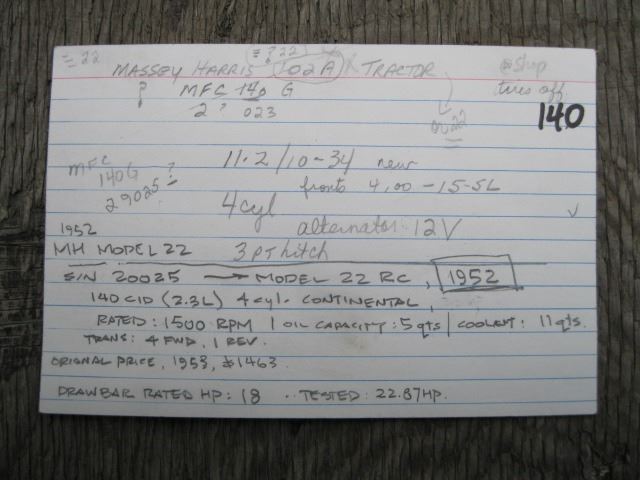 = 22
= ? 22
MASSEY HARRIS 102A TRACTOR
@ Shop
tires off
? MFC 140 G
2 ? 023
140
MFC
140G ?
29025
11.2/10-34 new
fronts 4.00-15-SL
4 cyl
alternator 12V
1952
MH MODEL 22 3 pt hitch
S/N 20025 → MODEL 22 RC, 1952
140 CID (2.3L) 4 cyl. CONTINENTAL,
RATED: 1500 RPM | OIL CAPACITY: 5 qts | COOLENT: 11 qts.
TRANS: 4 FWD, 1 REV.
ORIGNAL PRICE, 1953, $1463.
DRAWBAR RATED HP: 18 .. TESTED: 22.87HP.